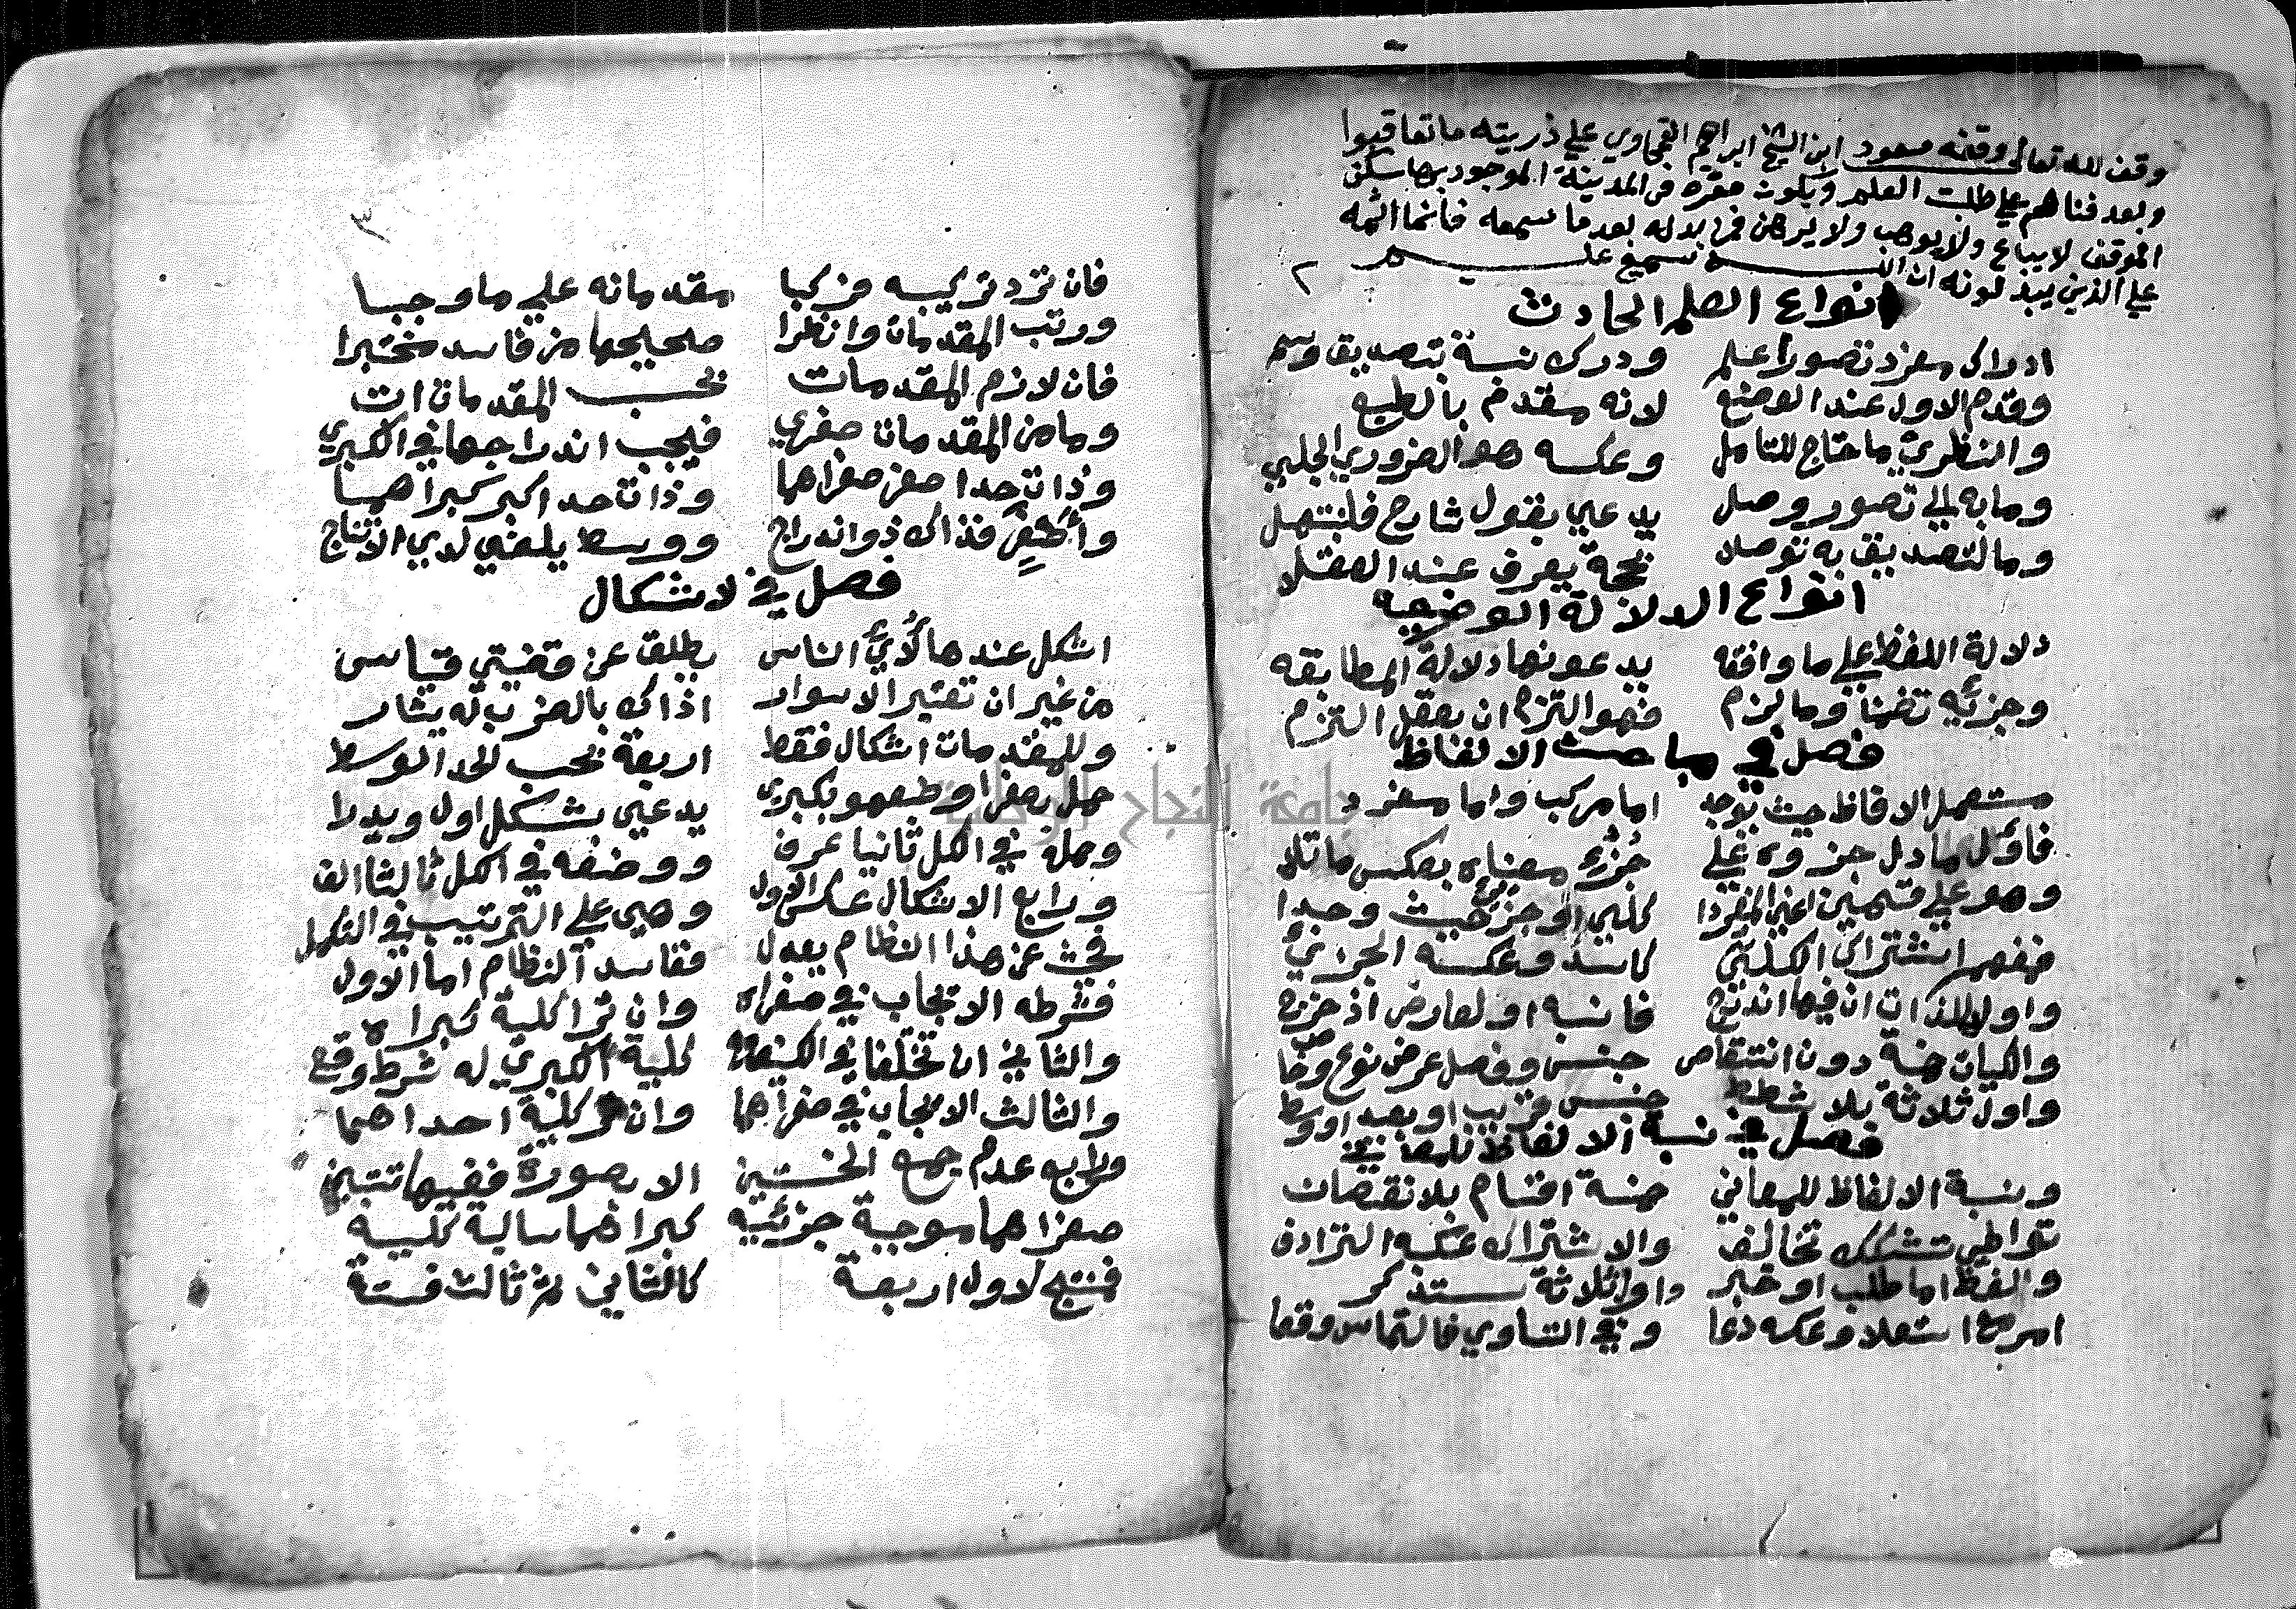 وقف لله تعالى وقفه مسعود ابن الشيخ ابراهيم القجاوي علي ذريته ما تعاقبوا
وبعد فناهم علي طلبت العلم ويكون مقره في المدينة الموجود بها سكن
الموقف لا يباع ولا يوهب ولا يرهن فمن بدله بعد ما سمعه فانما اثمه
علي الذين يبدلونه ان الله سميع عليم
٢
انواع العلم الحادث
ادراك مفرد تصورا علم ودرك نسبة بتصديق وسم
وقدم الاول عند الوضع لانه مقدم بالطبع
والنظري ما حتاج للتامل وعكسه هو الضروري الجلي
وما به الي تصور وصل يدعي بقول شارح فلتبتهل
وما لتصديق به توصلا بحجة يعرف عند العقلا
انواع الدلالة الوضعيه
دلالة اللفظ علي ما وافقه يدعونها دلالة المطابقه
وجزئه تضمنا وما لزم فهو التزم ان بعقل التزم
فصل في مباحث الالفاظ
مستعمل الالفاظ حيث يوجد اما مركب واما مفرد
فاول ما دل جزوه علي جزء معناه بعكس ما تلا
وهو علي قسمين اعني المفردا كلي او جزئي حيث وجدا
فمفهم اشتراك الكلي كاسد وعكسه الجزي
واولا للذات ان فيها اندرج فانسبه او لعارض اذ خرج
والكليات خمسة دون انتقاص جنس وفصل عرض نوع وخاص
واول ثلاثة بلا شطط جنس قريب او بعيد او وسط
فصل في نسبة الالفاظ للمعاني
ونسبة الالفاظ للمعاني خمسة اقسام بلا نقصان
تواطي تشكك تخالف والاشتراك عكسه الترادف
والفظ اما طلب او خبر واول ثلاثة ستذكر
امر مع استعلا وعكسه دعا وفي التساوي فالتماس وقعا
٣
فان ترد تركيبه فركبا مقدماته علي ما وجبا
ورتب المقدمات وانظرا صحيحها من فاسد مختبرا
فان لازم المقدمات بحسب المقدمات ات
وما من المقدمات صغري فيجب اندراجها في الكبري
وذات حد اصغر صغراهما وذات حد اكبر كبراهما
واصغر فذاك ذو اندراج ووسط يلغي لدي الانتاج
فصل في لاشكال
اشكل عند هالاي الناس يطلق عن قضيتي قياس
من غير ان تعتبر الاسوار اذاك بالضرب له يشار
وللمقدمات اشكال فقط اربعة بحسب الحد الوسط
حمل بصغرا وضعه بكبري يدعي بشكل اول ويدرا
وحمله في الكل ثانيا عرف ووضعه في الكل ثالثا الف
ورابع الاشكال عكس الاول وهي علي الترتيب في التكمل
فحيث عن هذا النظام يعدل ففاسد النظام اما الاول
فشرطه الايجاب في صغراه وان ترا كلية كبراه
والثاني ان تختلفا في الكيف مع كلية الكبري له شرط وقع
والثالث الايجاب في صغراهما وان تر كلية احداهما
ورابع عدم جمع الخستين الا بصورة ففيها تستبين
صغراهما موجبة جزئيه كبراهما سالبة كليه
فمنتج لاول اربعة كالثاني ثم ثالث فستة